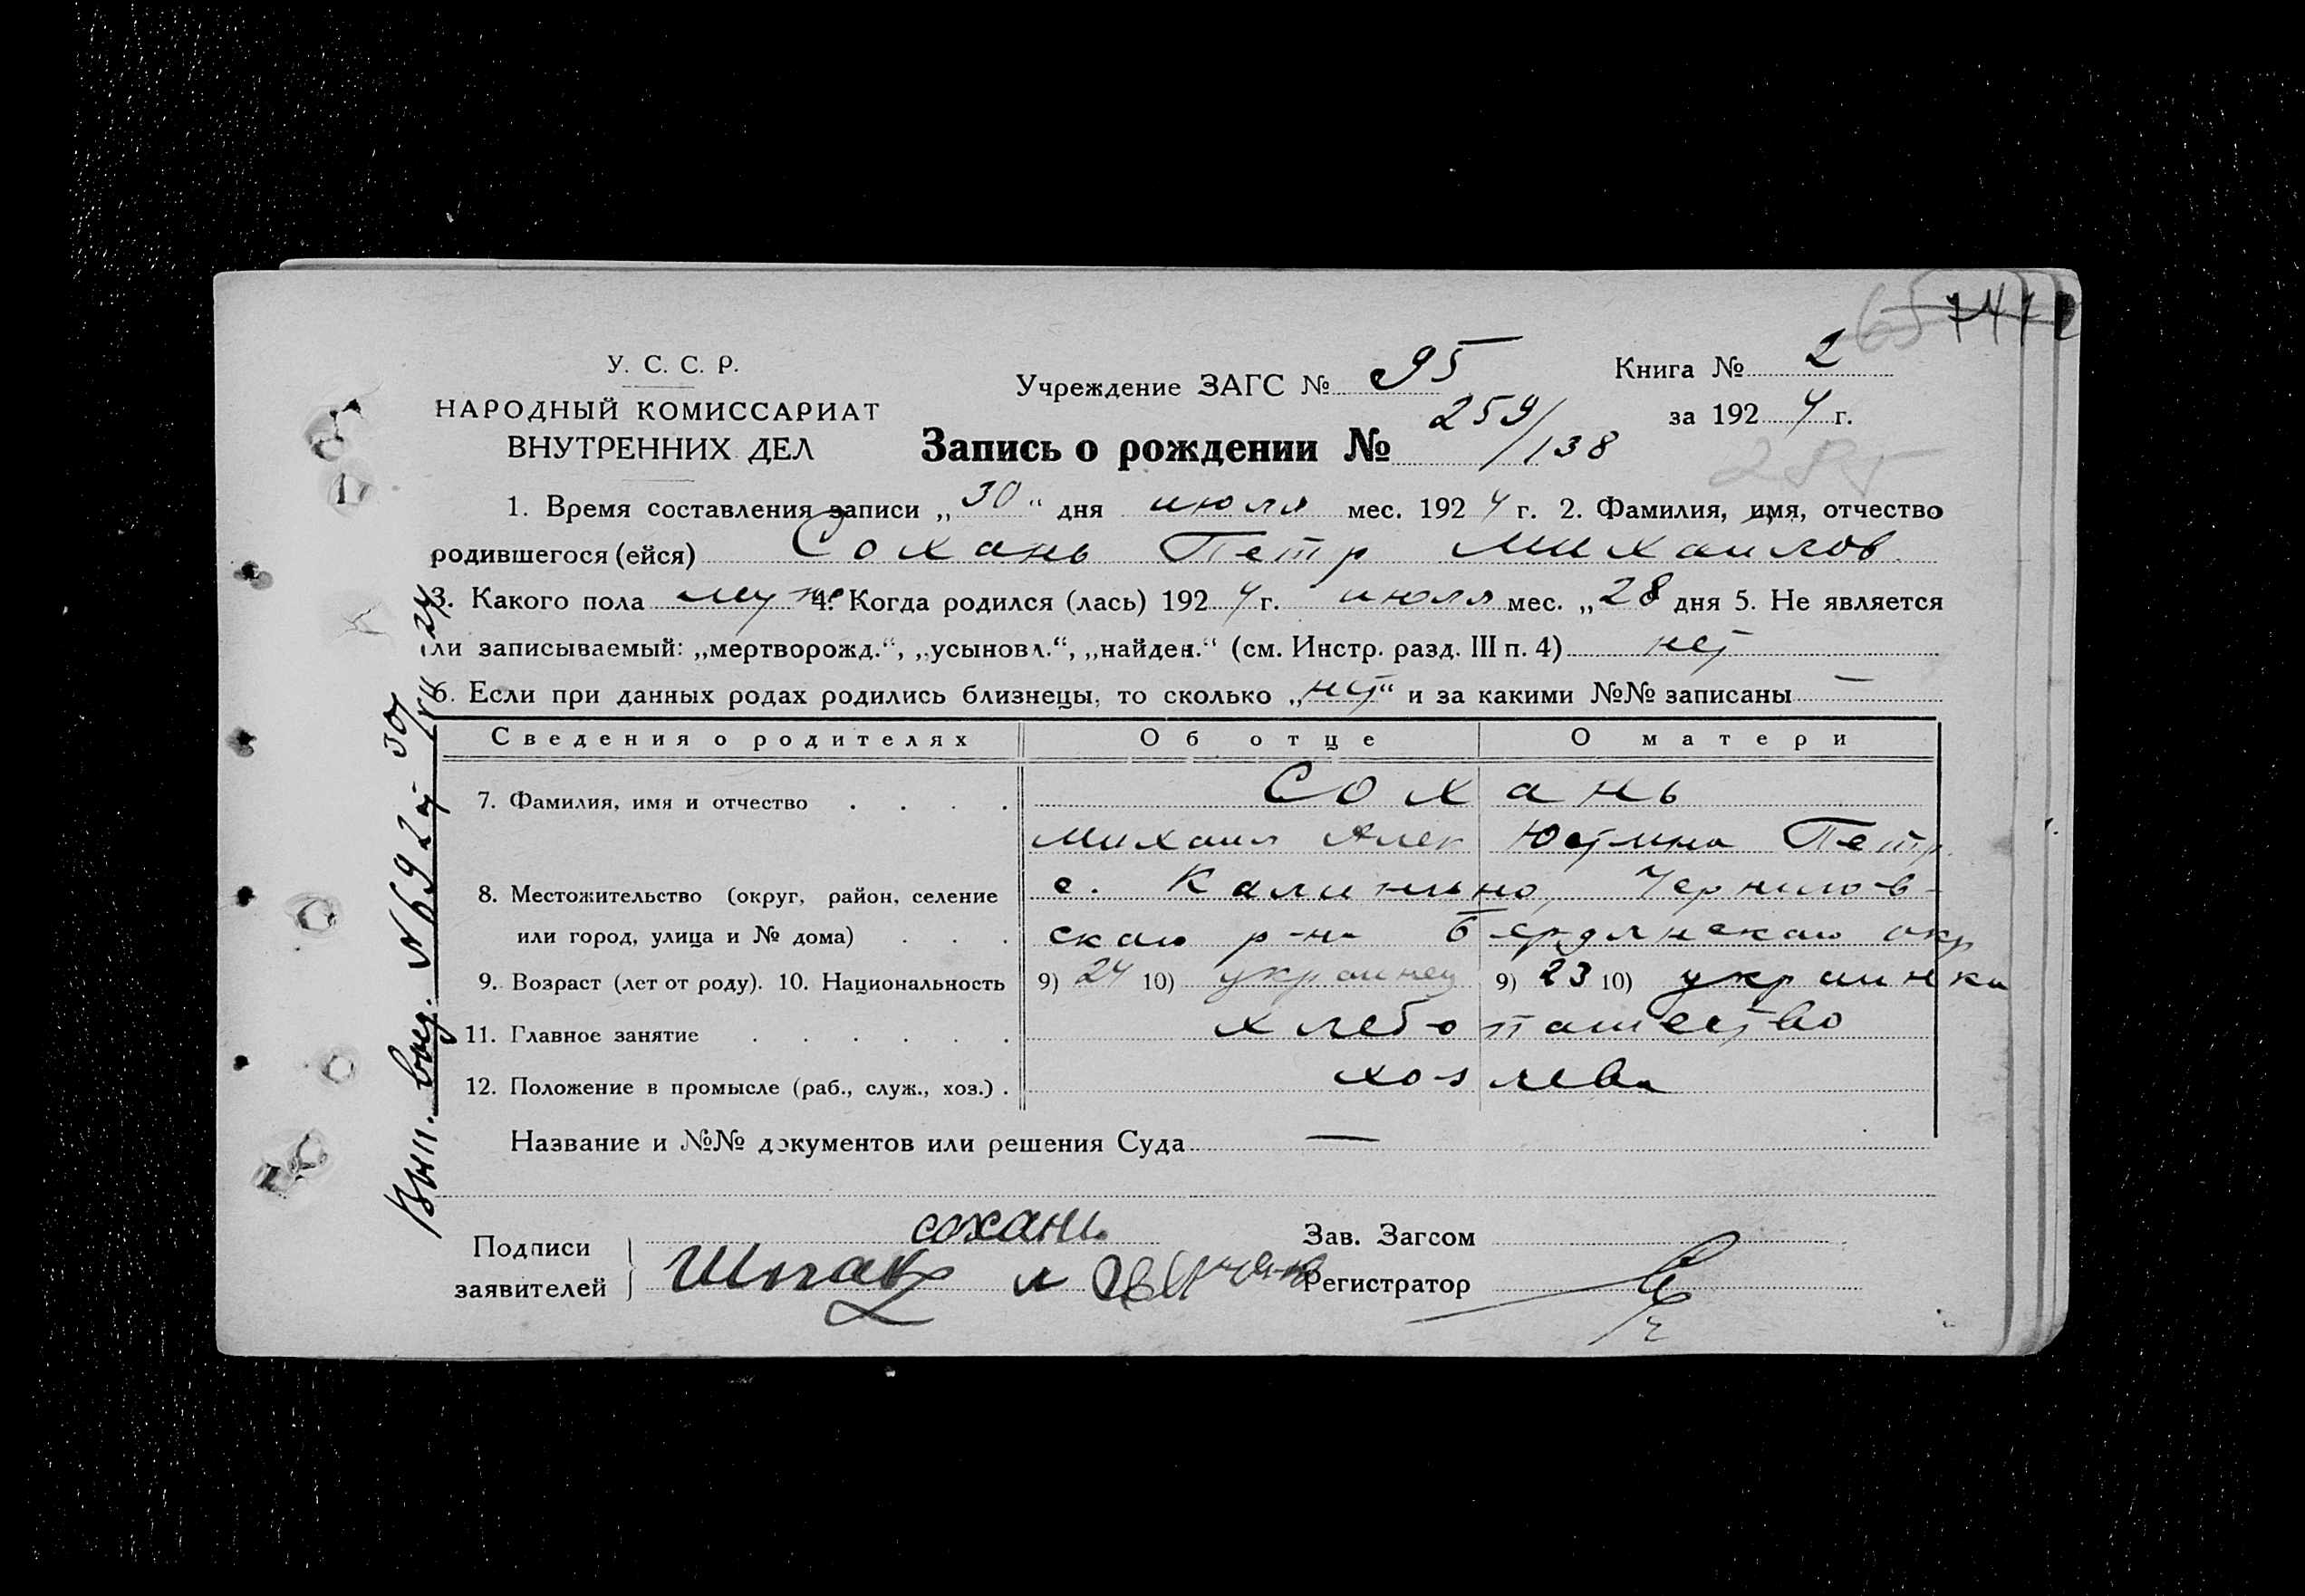 65 74
У. С. С. Р.
НАРОДНЫЙ КОМИССАРИАТ
ВНУТРЕННИХ ДЕЛ
Учреждение ЗАГС № 95
Книга № 2
за 1924 г.
Запись о рождении № 259/138
285
1. Время составления записи „30“ дня июля мес. 1924 г. 2. Фамилия, имя, отчество
родившегося (ейся) Сохань Петр Михаилов
3. Какого пола муж 4. Когда родился (лась) 1924 г. июля мес. „28 дня 5. Не является
ли записываемый: „мертворожд.“, „усыновл.“, „найден.“ (см. Инстр. разд. III п. 4) нет
6. Если при данных родах родились близнецы, то сколько „нет“ и за какими №№ записаны —
Сведения о родителях Об отце О матери
7. Фамилия, имя и отчество . . . . Сохань
Михаил Алек Юстина Петр.
8. Местожительство (округ, район, селение с. Калинино, Чернигов-
или город, улица и № дома) . . . скаго р-н Бердянскаго окр
9. Возраст (лет от роду). 10. Национальность 9) 24 10) украинец 9) 23 10) украинка
11. Главное занятие . . . . . . хлебопашество
12. Положение в промысле (раб., служ., хоз.) . хозяева
Название и №№ документов или решения Суда —
Подписи
заявителей
сохань
Шпак и
Зав. Загсом
Регистратор
Вып. выд. № 692 от 30/VII 24